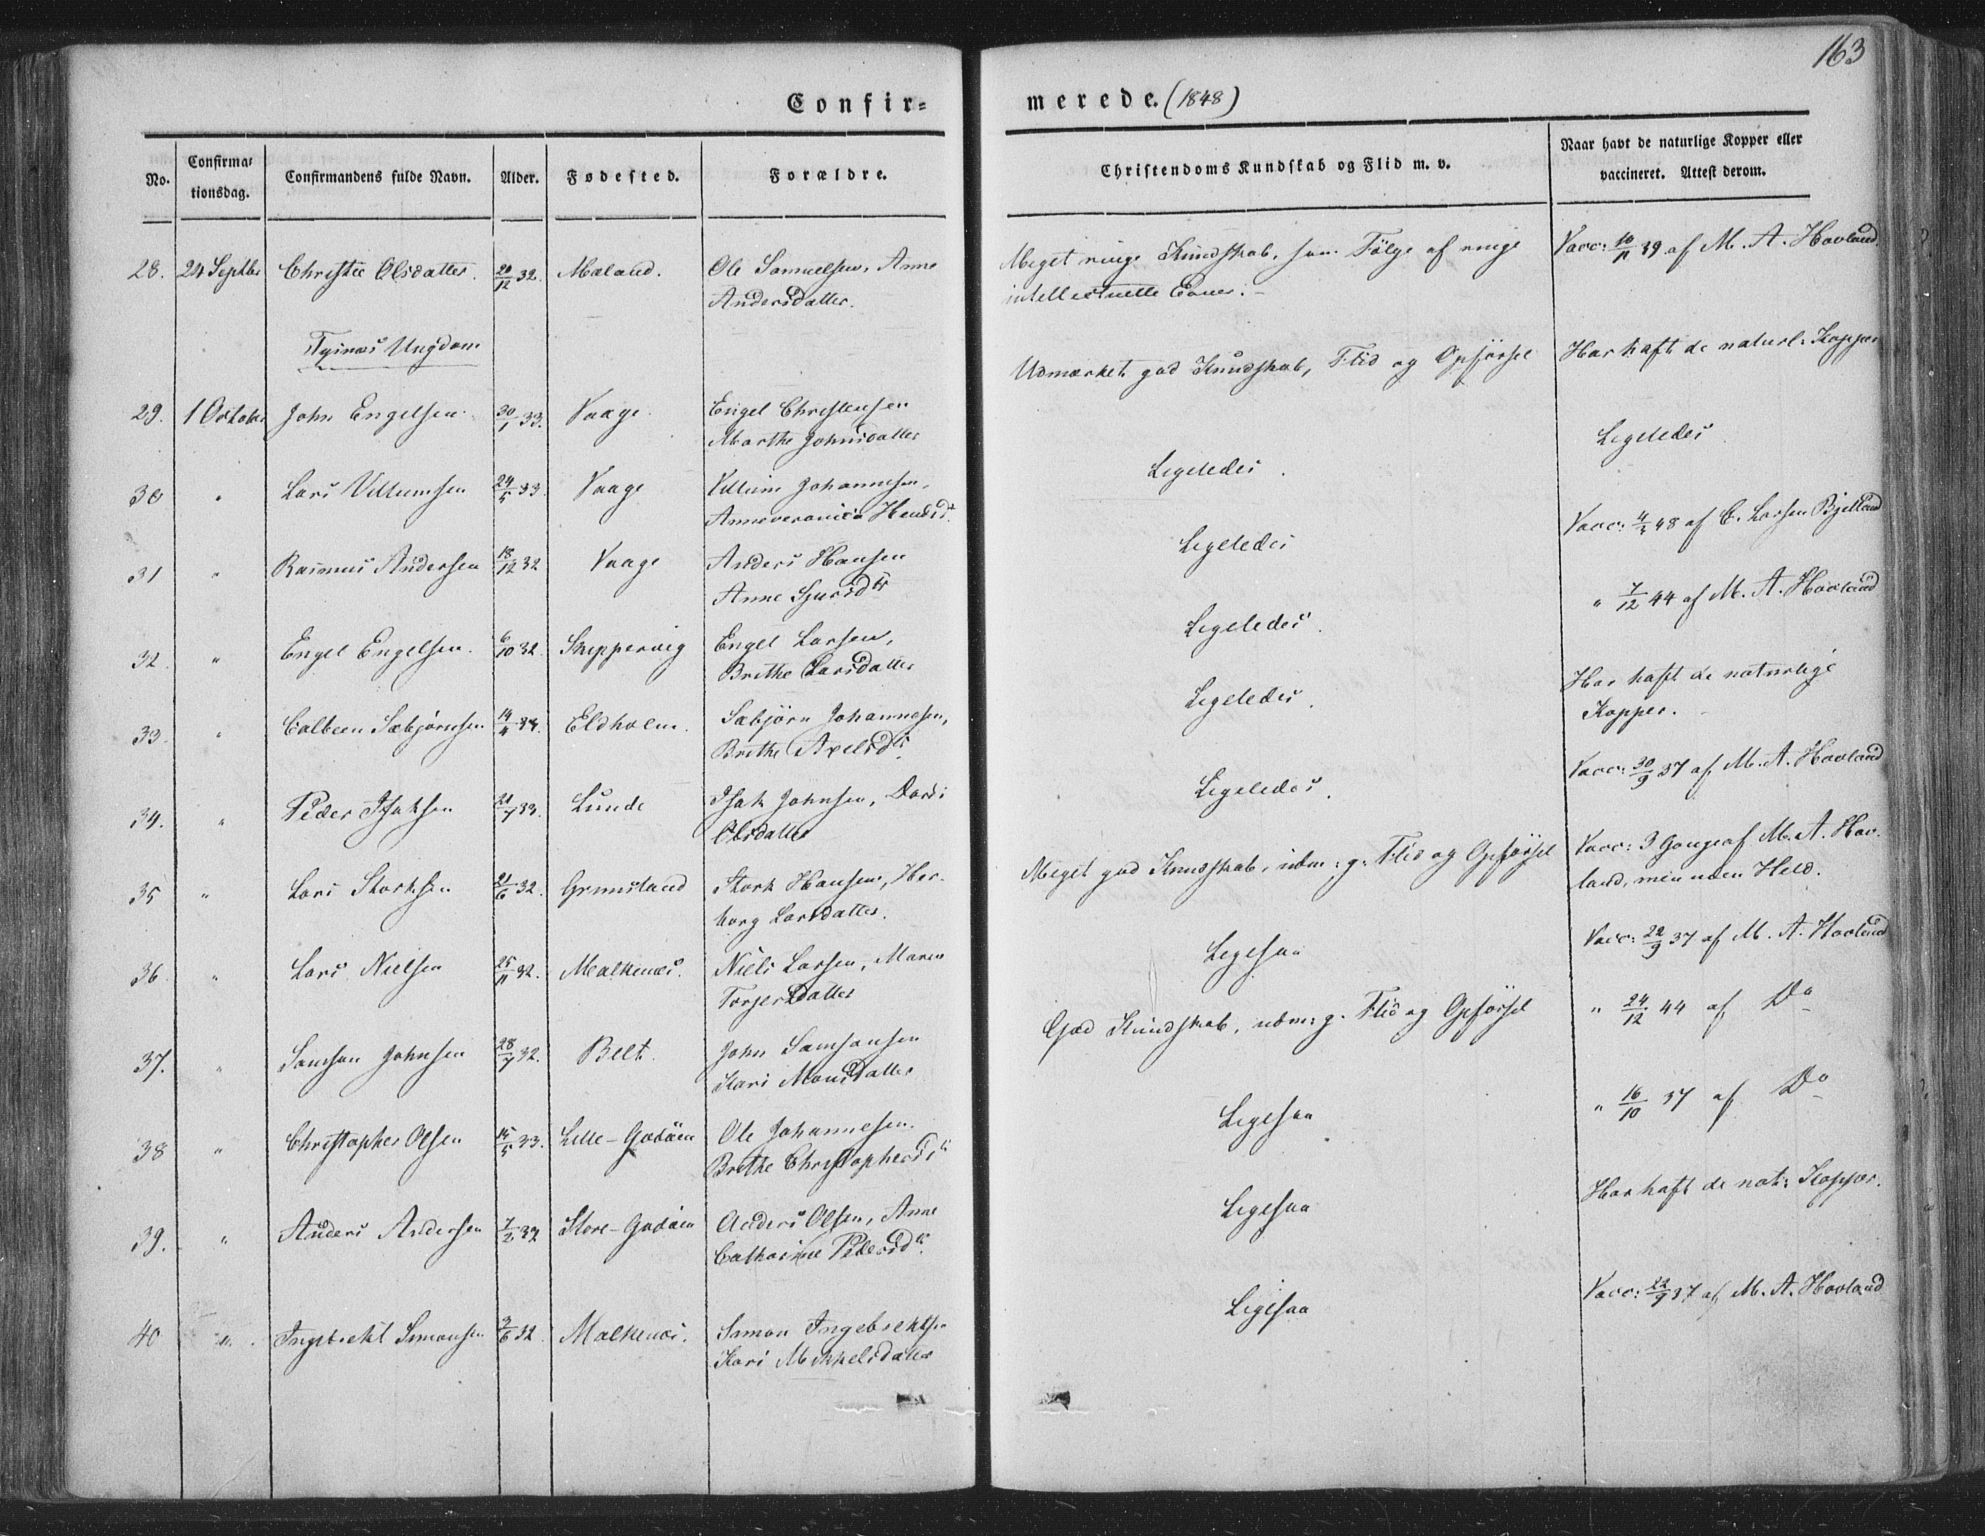 163
Confir=
merede. (1848)
No.
Confirma-
tionsdag.
Confirmandens fulde Navn.
Alder.
Fødested.
Forældre.
Christendoms Kundskab og Flid m. v.
Naar havt de naturlige Kopper eller
vaccineret. Attest derom.
28. 24 Septbr Christie Olsdatter. 20/12 32. Maland. Ole Samuelsen, Anne
Andersdatter.
Meget ringe Kundskab, som Følge af ringe
intellectuelle Evner. –
Vacc: 10/11 39 af M. A. Havland.
Tysnæs Ungdom
29. 1 October John Engelsen. 30/1 33. Vaage. Engel Christensen
Marthe Johnsdatter
Udmærket god Kundskab, Flid og Opførsel
Har haft de naturl: Kopper
30 " Lars Villumsen 24/5 33. Vaage Villum Johannesen,
Anneveronica
Ligeledes.
Ligeledes.
31 " Rasmus Andersen 18/12 32 Vaage Anders Hansen
Anne Sjursdtr
Ligeledes
Vacc: 48 af C. Larsen Bjelland
32. " Engel Engelsen. 6/10 32. Skippervig Engel Larsen,
Brithe Larsdatter
Ligeledes.
" 7/12 44 af M. A. Havland
33. " Colbeen Sæbjørnsen Eldholm. Sæbjørn Johannesen,
Brithe Axelsdtr.
Ligeledes.
Har haft de naturlige
Kopper.
34. " Peder Isaksen 21/7 33. Lunde Isak Johnsen, Dordi
Olsdatter
Ligeledes.
Vacc: 30/9 37 af M. A. Havland
35 " Lars Storksen 21/6 32. Grimstand Stork Hansen, Her-
borg Larsdatter.
Meget god Kundskab, udm: g: Flid og Opførsel
Vacc: 3 Gange af M. A. Hav-
land, men uden Held.
36. " Lars Nielsen 25/11 32. Malkenæs. Niels Larsen, Maren
Torgersdatter
Ligesaa
Vacc: 22/9 37 af M. A. Havland
37. " Samson Johnsen 28/7 32. Belt. John Samsonsen
Kari Monsdatter
God Kundskab, udm: g. Flid og Opførsel
" 24/12 44 af Do
38 " Christopher Olsen 15/5 33. Lille-Godøen Ole Johannesen.
Brithe Christophersdtr
Ligesaa
" 16/10 37 af Do
39. " Anders Andersen 7/2 32 Store-Godøen Anders Olsen, Anne
Catharine Pedersdtr.
Ligesaa
Har haft de nat: Kopper.
40 " Ingebrekt Simonsen 3/6 32. Malkenæs. Simon Ingebrektsen
Kari Mikkelsdatter
Ligesaa
Vacc: 22/9 37 af M. A. Havland